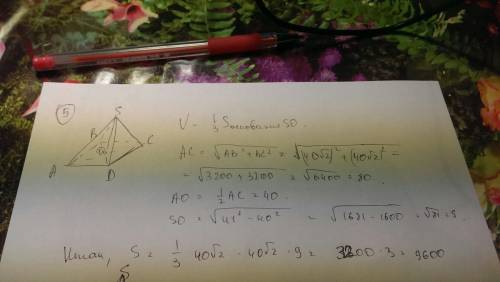 5
S
B
C
A
D
V = 1/3 Sоснования SO.
AC = √AB² + BC² = √(40√2)² + (40√2)² =
= √3200 + 3200 = √6400 = 80.
AO = 1/2 AC = 40.
SO = √41² - 40² = √1681 - 1600 = √81 = 9.
Итак, S = 1/3 40√2 · 40√2 · 9 = 3200 · 3 = 9600
S